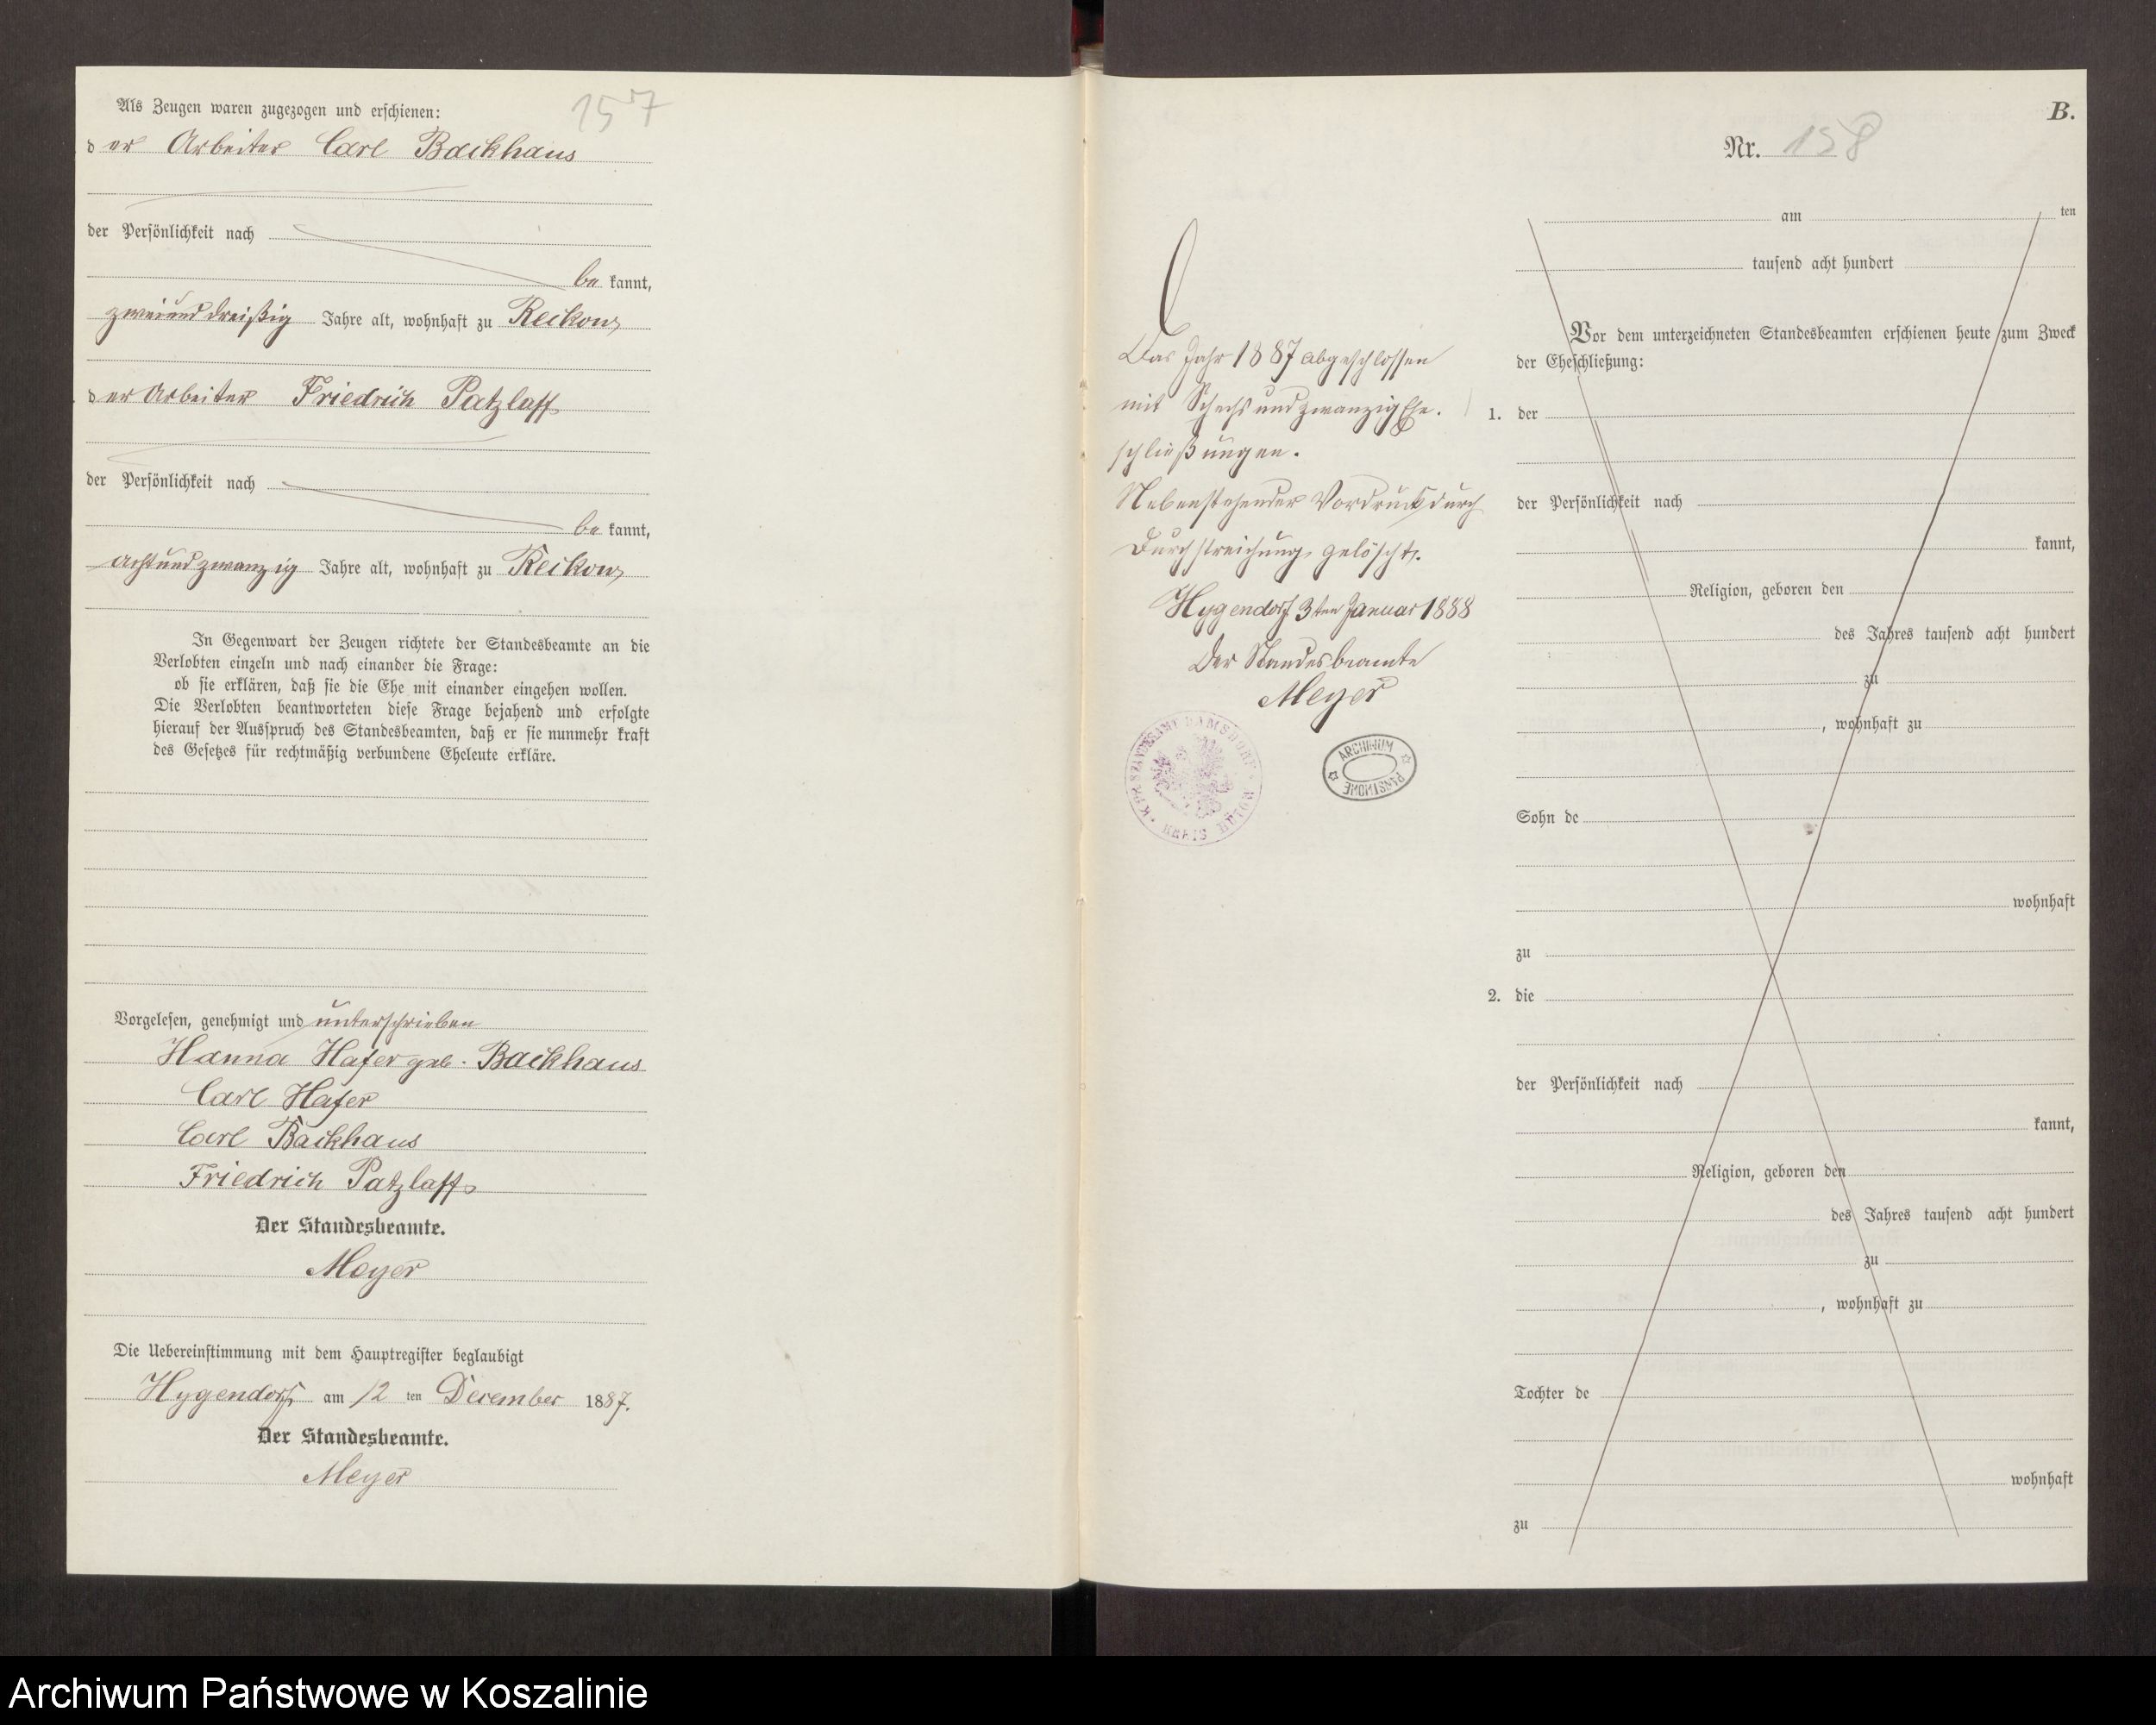 157
Als Zeugen waren zugezogen und erschienen:
der Arbeiter Carl Backhaus
der Persönlichkeit nach
be kannt,
zweiunddreißig Jahre alt, wohnhaft zu Reckow
der Arbeiter Friedrich Patzlaff
der Persönlichkeit nach
be kannt,
achtundzwanzig Jahre alt, wohnhaft zu Reckow
In Gegenwart der Zeugen richtete der Standesbeamte an die
Verlobten einzeln und nach einander die Frage:
ob sie erklären, daß sie die Ehe mit einander eingehen wollen.
Die Verlobten beantworteten diese Frage bejahend und erfolgte
hierauf der Ausspruch des Standesbeamten, daß er sie nunmehr kraft
des Gesetzes für rechtmäßig verbundene Eheleute erkläre.
Vorgelesen, genehmigt und unterschrieben
Hanna Hafer geb. Backhaus
Carl Hafer
Carl Backhaus
Friedrich Patzlaff
Der Standesbeamte.
Meyer
Die Uebereinstimmung mit dem Hauptregister beglaubigt
Hygendorf am 12 ten December 1887.
Der Standesbeamte.
Meyer
Das Jahr 1887 abgeschlossen
mit Sechsundzwanzig Ehe.
schließungen.
Nebenstehender Vordruck durch
Durchstreichung gelöscht.
Hygendorf 3ten Januar 1888
Der Standesbeamte
Meyer
STANDESAMT DAMSDORF
KREIS BÜTOW
ARCHIWUM
PAŃSTWOWE
B.
Nr. 158
am ten
tausend acht hundert
Vor dem unterzeichneten Standesbeamten erschienen heute zum Zweck
der Eheschließung:
1. der
der Persönlichkeit nach
kannt,
Religion, geboren den
des Jahres tausend acht hundert
zu
, wohnhaft zu
Sohn de
wohnhaft
zu
2. die
der Persönlichkeit nach
kannt,
Religion, geboren den
des Jahres tausend acht hundert
zu
, wohnhaft zu
Tochter de
wohnhaft
zu
Archiwum Państwowe w Koszalinie